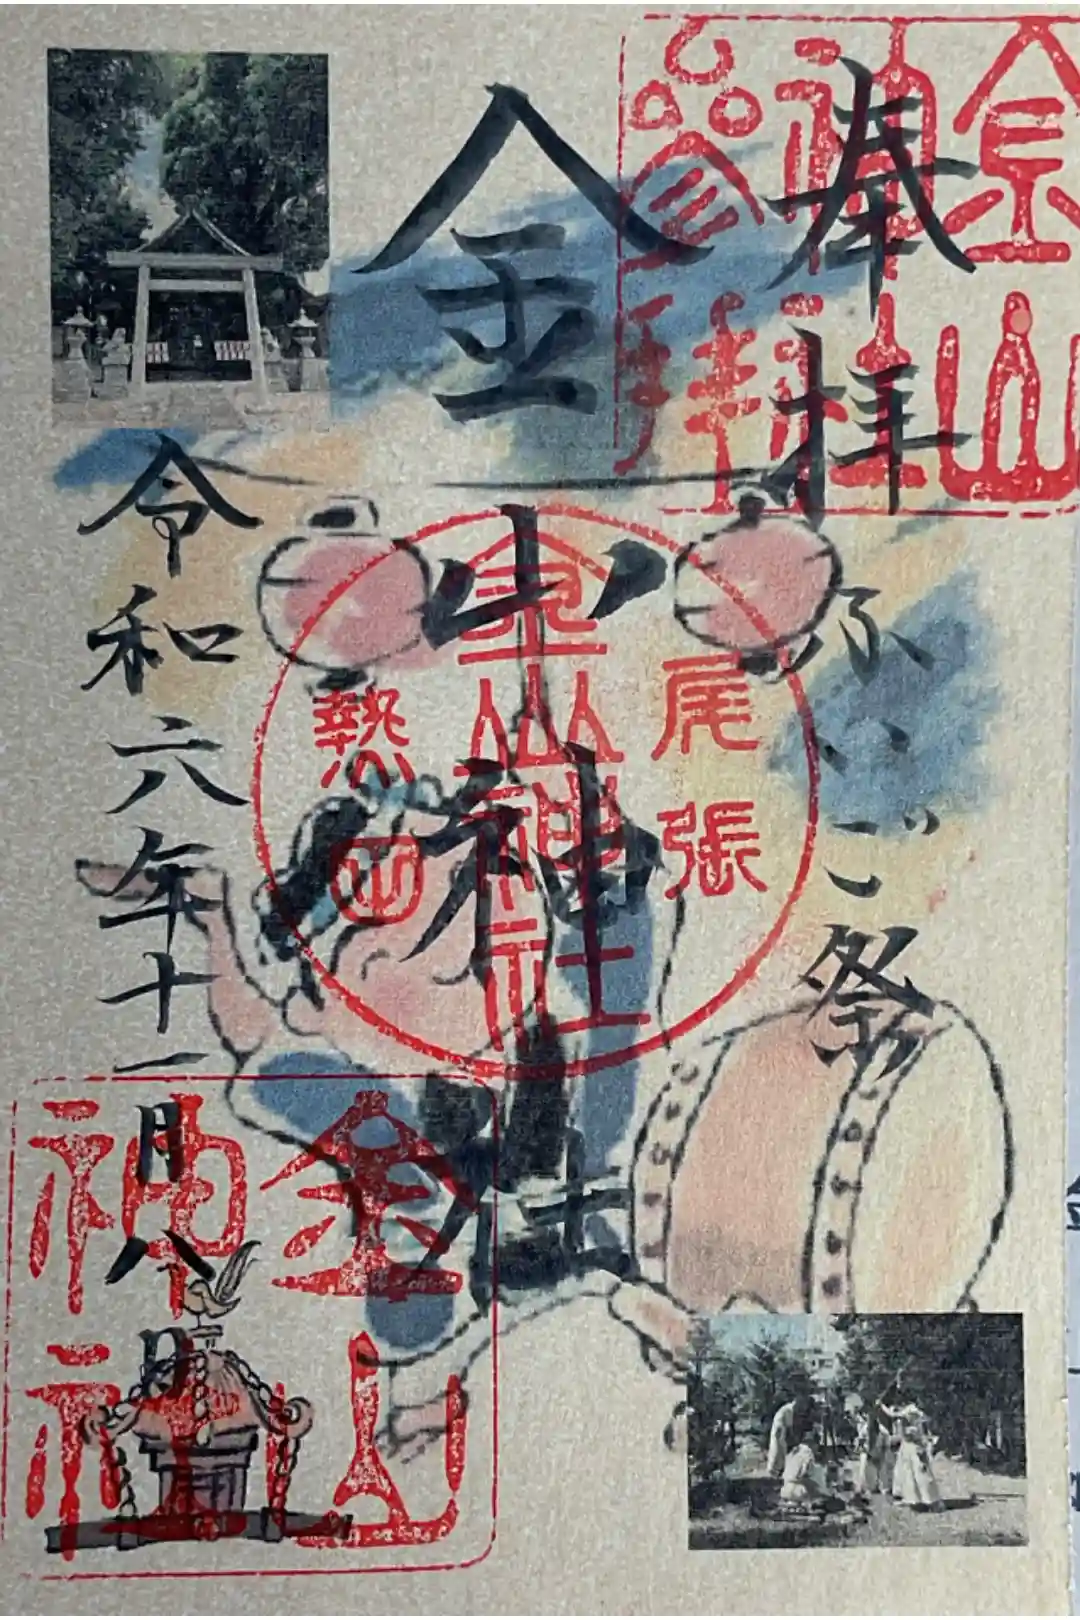 奉拝
ふいご祭
金山神社
令和六年十一月八日
金山神社参拝
尾張
金山神社
熱田
金山神社